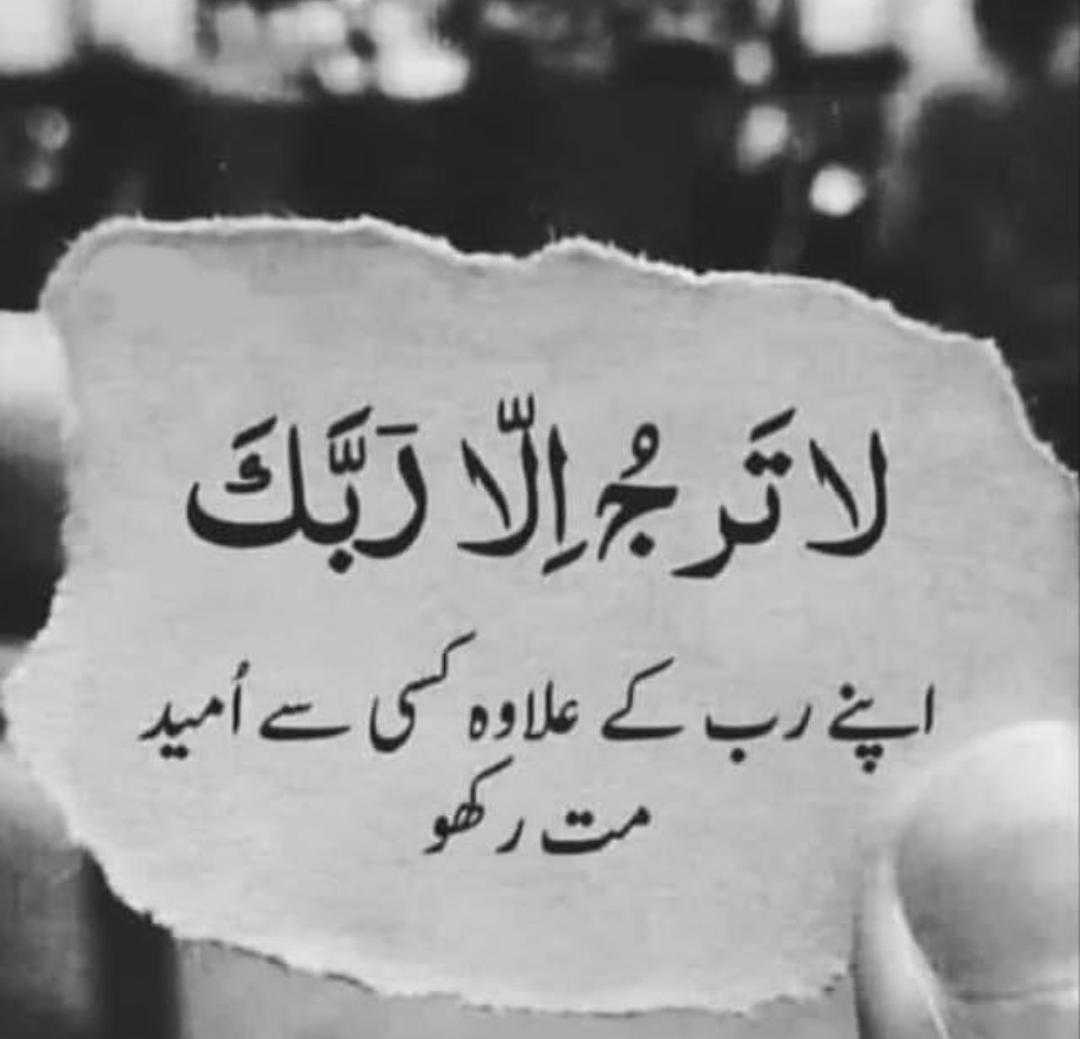 لا تَرجُ اِلّا رَبَّكَ
اپنے رب کے علاوہ کسی سے اُمید
مت رکھو